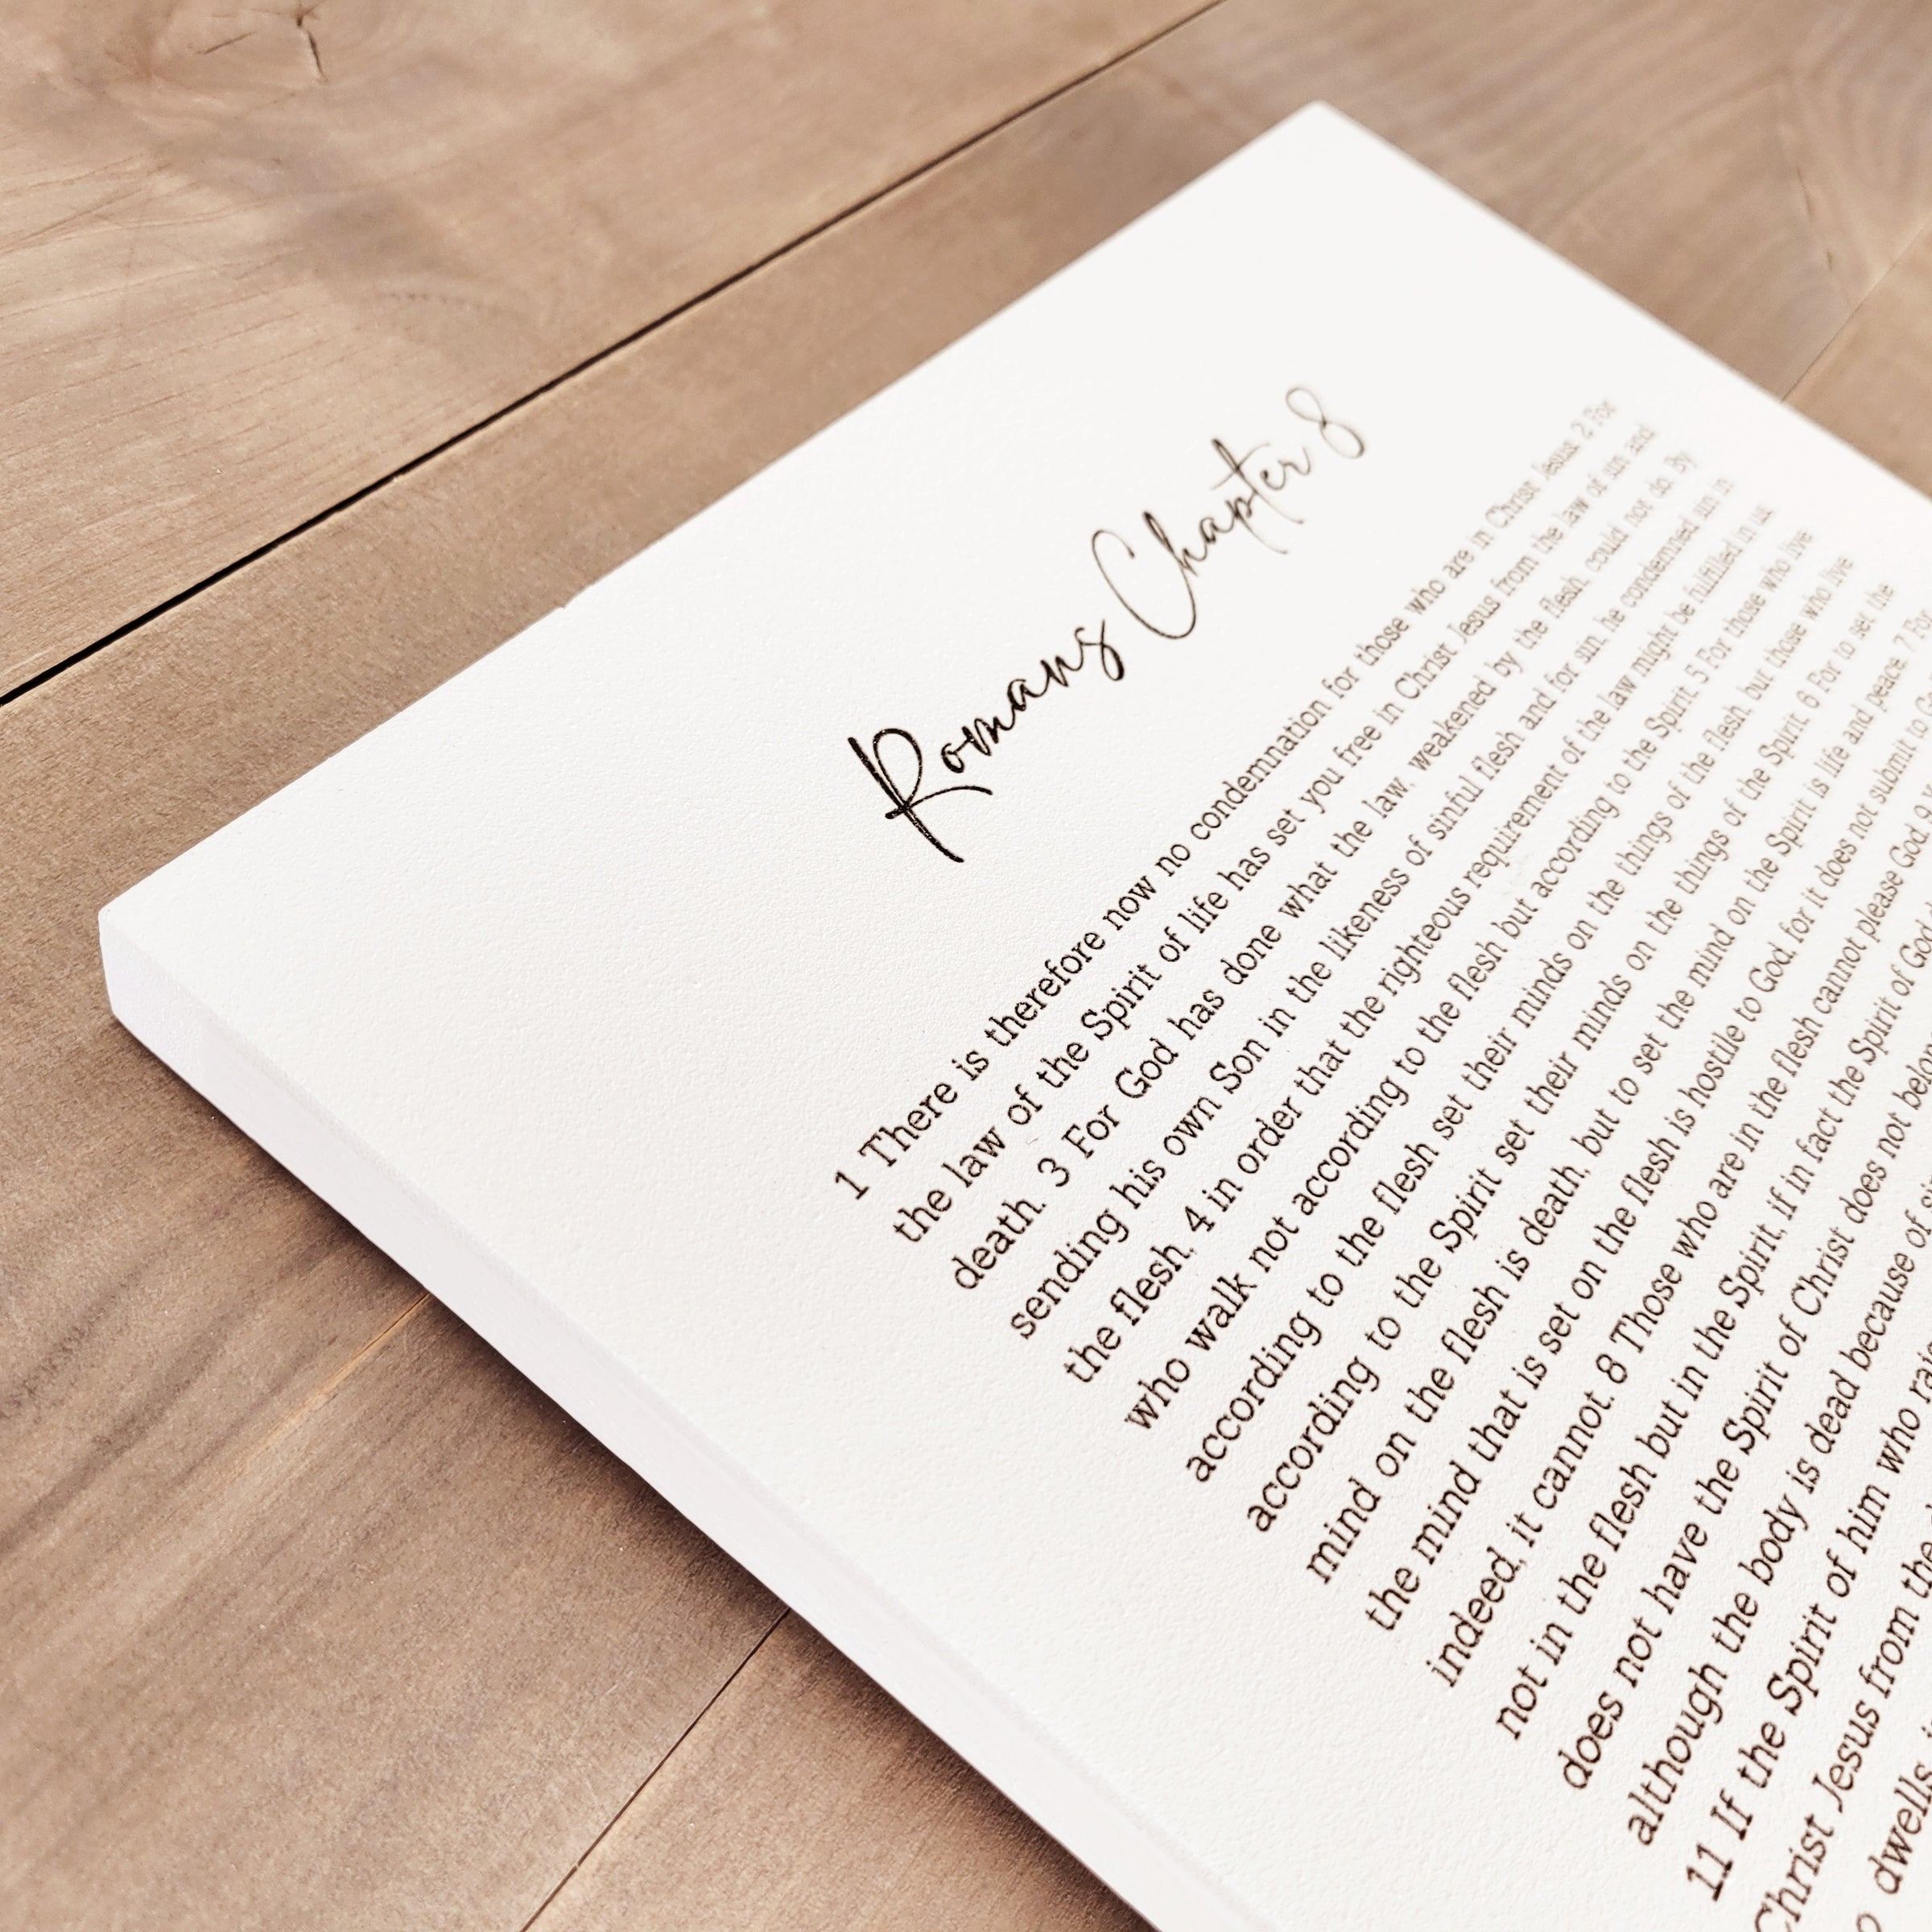 Romans Chapter 8
1 There is therefore now no condemnation for those who are in Christ Jesus. 2 For
the law of the Spirit of life has set you free in Christ Jesus from the law of sin and
death. 3 For God has done what the law, weakened by the flesh, could not do. By
sending his own Son in the likeness of sinful flesh and for sin, he condemned sin in
the flesh, 4 in order that the righteous requirement of the law might be fulfilled in us,
who walk not according to the flesh but according to the Spirit. 5 For those who live
according to the flesh set their minds on the things of the flesh, but those who live
according to the Spirit set their minds on the things of the Spirit. 6 For to set the
mind on the flesh is death, but to set the mind on the Spirit is life and peace. 7 For
the mind that is set on the flesh is hostile to God, for it does not submit to
indeed, it cannot. 8 Those who are in the flesh cannot please God.
not in the flesh but in the Spirit, if in fact the Spirit of God
does not have the Spirit of Christ does not
although the body is dead because of
11 If the Spirit of him who
Christ Jesus from the
dwells